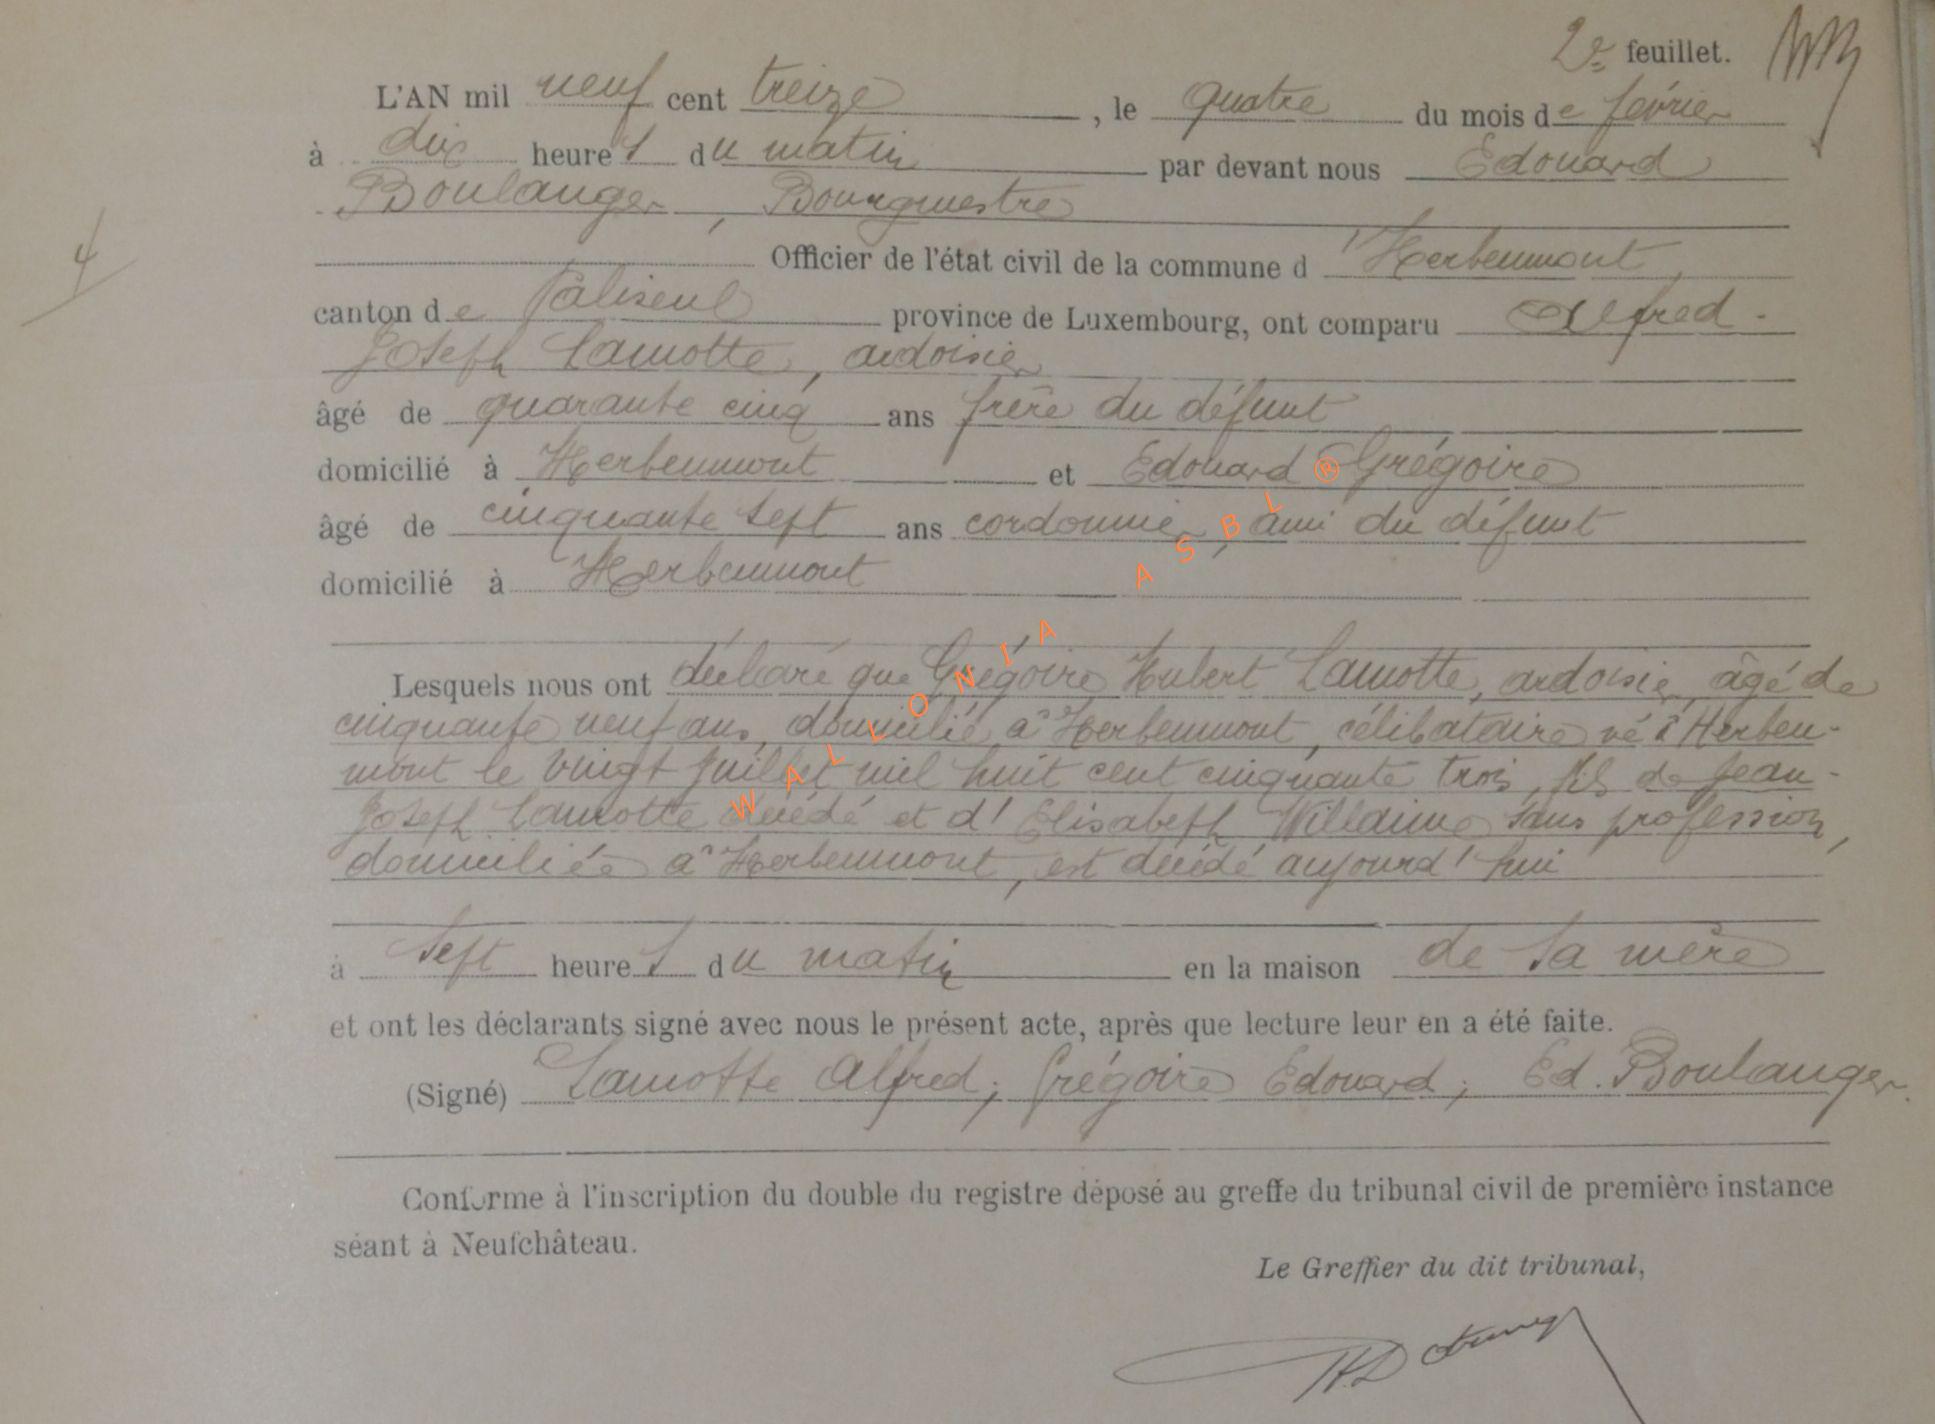 2e feuillet.
L'AN mil neuf cent treize, le quatre du mois de février
à dix heures du matin par devant nous Edouard
Boulanger, Bourgmestre
Officier de l'état civil de la commune d'Herbeumont,
canton de Paliseul province de Luxembourg, ont comparu Alfred-
Joseph Lamotte, ardoisier
âgé de quarante cinq ans frère du défunt
domicilié à Herbeumont et Edouard Grégoire
âgé de cinquante sept ans cordonnier, ami du défunt
domicilié à Herbeumont
4
Lesquels nous ont déclaré que Grégoire Hubert Lamotte, ardoisier, âgé de
cinquante neuf ans, domicilié à Herbeumont, célibataire né à Herbeu-
mont le vingt juillet mil huit cent cinquante trois, fils de Jean-
Joseph Lamotte décédé et d'Elisabeth Willaime sans profession,
domiciliée à Herbeumont, est décédé aujourd'hui
à sept heures du matin en la maison de sa mère
et ont les déclarants signé avec nous le présent acte, après que lecture leur en a été faite.
(Signé) Lamotte Alfred; Grégoire Edouard; Ed. Boulanger.
Conforme à l'inscription du double du registre déposé au greffe du tribunal civil de première instance
séant à Neufchâteau.
Le Greffier du dit tribunal,
WALLONIA ASBL ®